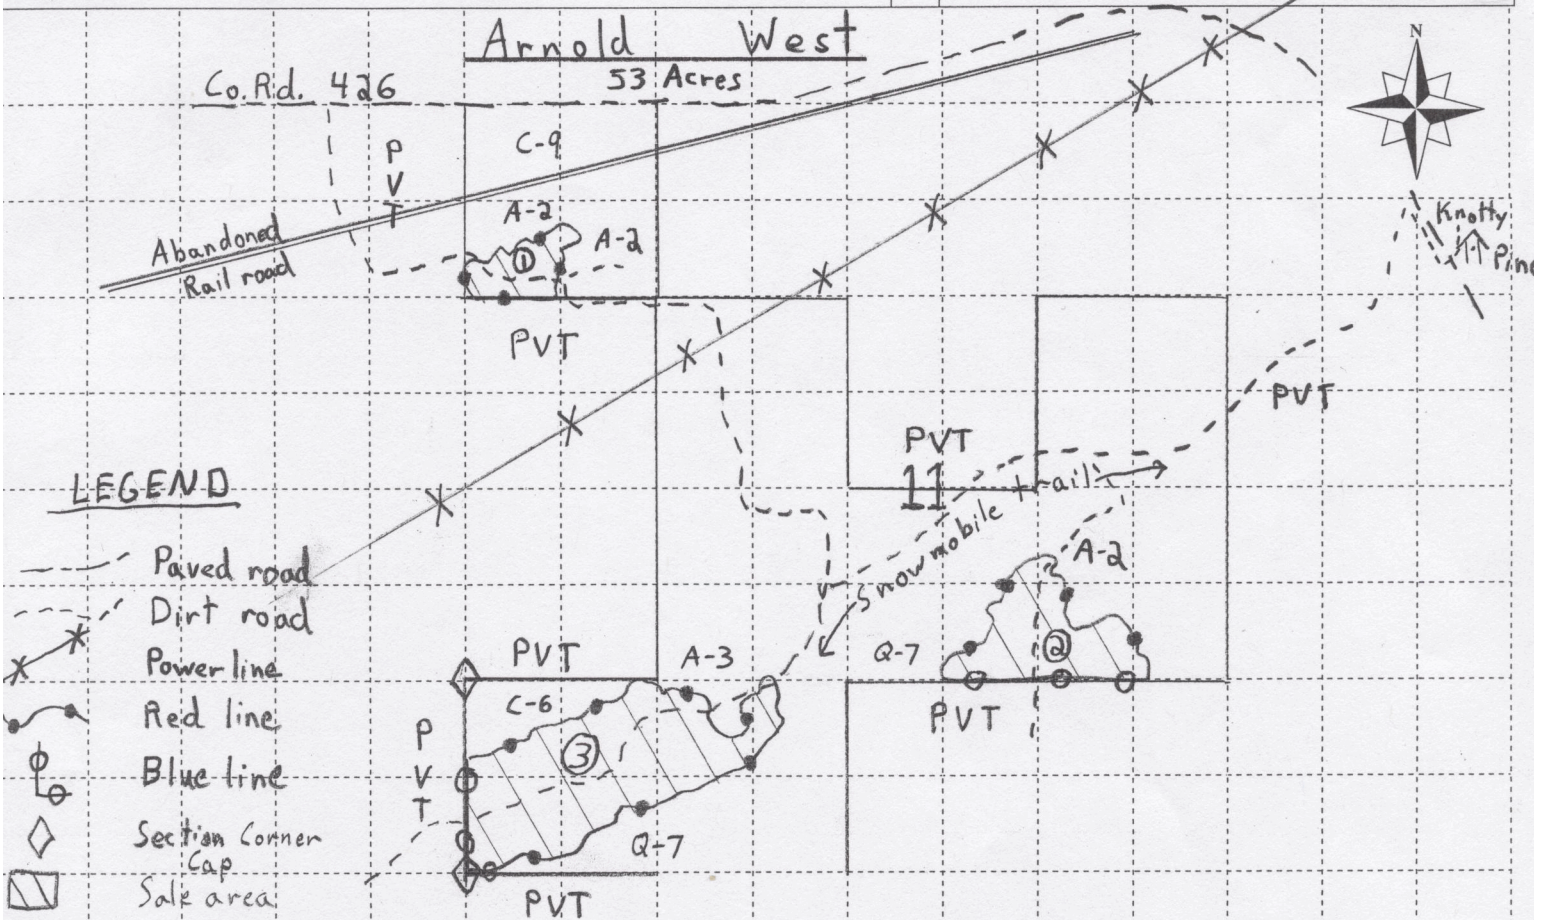 Arnold West
53 Acres
Co. Rd. 426
N
C-9
PVT
A-2
A-2
①
Abandoned
Rail road
Knotty
Pine
PVT
PVT
PVT
11
snowmobile trail
LEGEND
Paved road
Dirt road
Power line
Red line
Blue line
Section Corner
Cap
Sale area
A-2
Q-7
②
PVT
PVT
A-3
C-6
③
PVT
Q-7
PVT